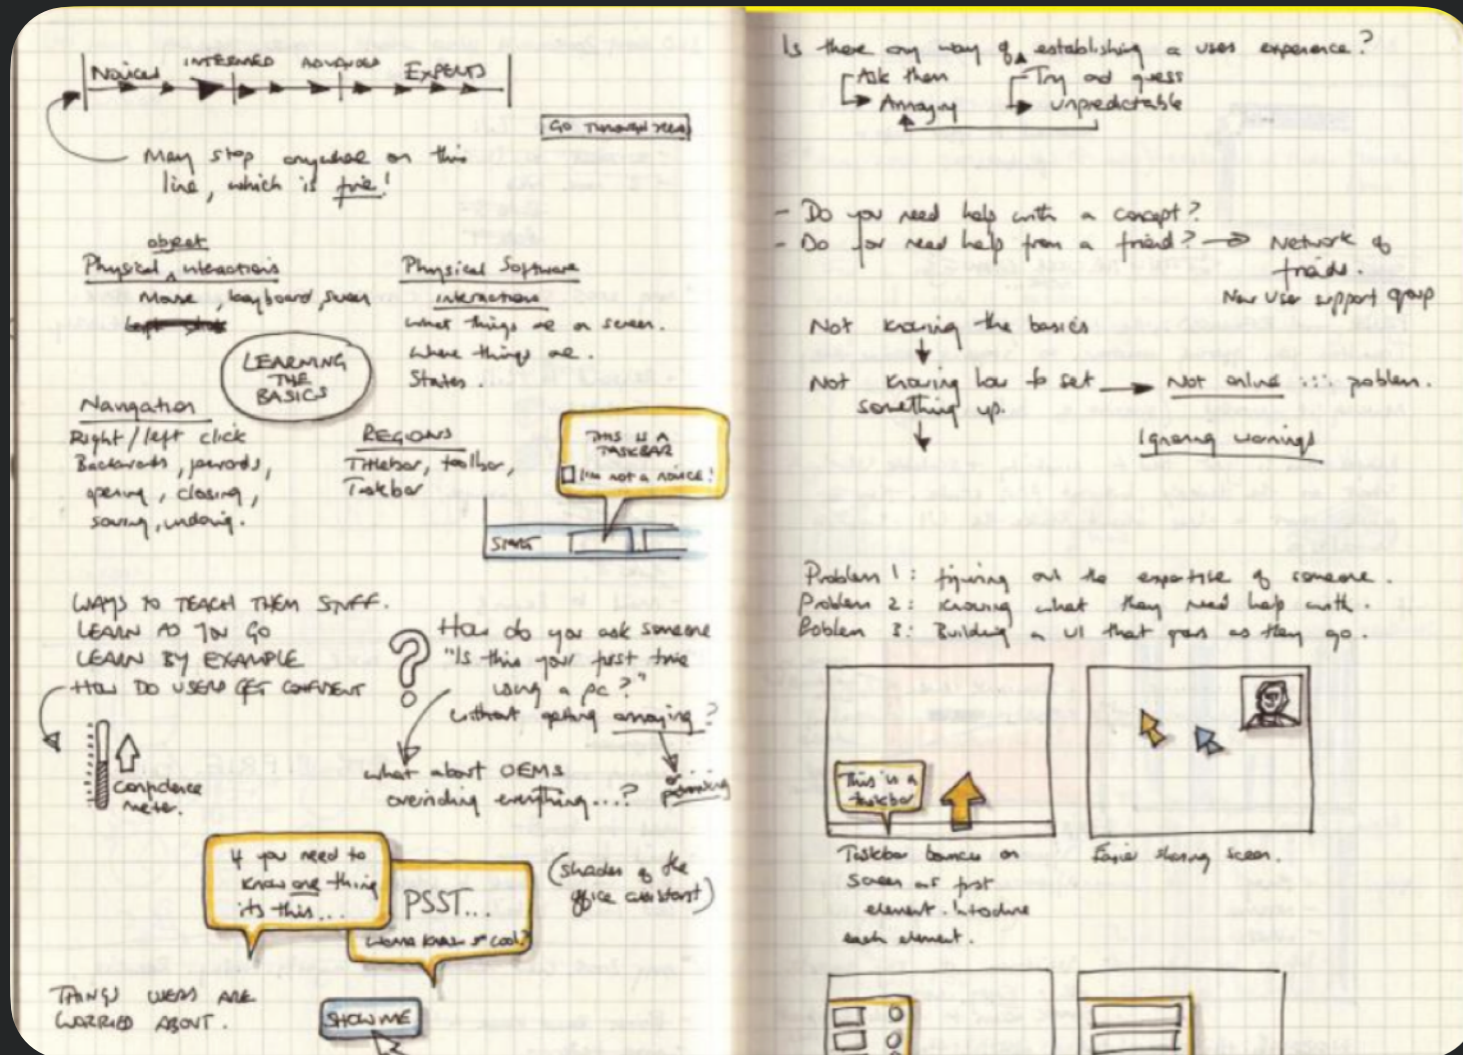 NOVICES INTERMED ADVANCED EXPERTS
GO THROUGH
May stop anywhere on this
line, which is fine!
object
Physical ^ interactions
Mouse, keyboard, screen
Physical Software
interactions
what things are on screen.
where things are.
States.
LEARNING
THE
BASICS
Navigation
Right/left click
Backwards, forwards,
opening, closing,
saving, undoing.
REGIONS
Titlebar, toolbar,
Taskbar
THIS IS A
TASKBAR
I'm not a novice!
START
WAYS TO TEACH THEM STUFF.
LEARN AS YOU GO
LEARN BY EXAMPLE
HOW DO USERS GET CONFIDENT
Confidence
meter.
? How do you ask someone
"Is this your first time
using a pc?"
without getting annoying?
or
patronising
what about OEMS
overriding everything...?
If you need to
know one thing
its this...
PSST...
wanna know sr cool?
(shades of the
office assistant)
THINGS USERS ARE
WORRIED ABOUT.
SHOW ME
Is there any way of establishing a users experience?
Ask them
Annoying
Try and guess
unpredictable
- Do you need help with a concept?
- Do you need help from a friend? → Network of
friends.
New user support group
Not knowing the basics
Not knowing how to set
something up.
Not online ::: problem.
Ignoring warnings
Problem 1: figuring out the expertise of someone.
Problem 2: Knowing what they need help with.
Problem 3: Building a UI that grows as they go.
This is a
taskbar
Taskbar bounces on
screen as first
element. Introduce
each element.
Easier sharing screen.